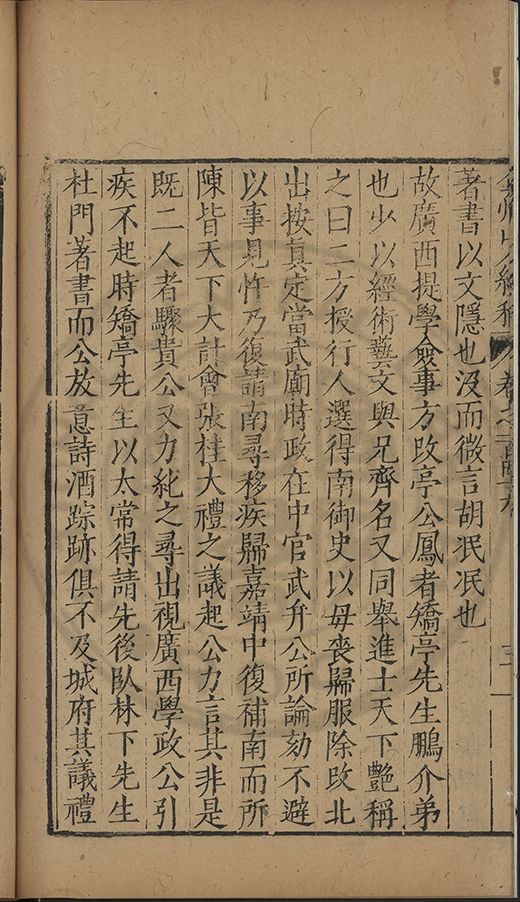 弇州山人續稿 卷之一百四十九 三
著書以文隱也沒而微言胡泯泯也
故廣西提學僉事方改亭公鳳者矯亭先生鵬介弟
也少以經術藝文與兄齊名又同舉進士天下艷稱
之曰二方授行人選得南御史以毋喪歸服除改北
出按真定當武廟時政在中官武弁公所論劾不避
以事見忤乃復請南尋移疾歸嘉靖中復補南而所
陳皆天下大計會張桂大禮之議起公力言其非是
既二人者驟貴公又力紕之尋出視廣西學政公引
疾不起時矯亭先生以太常得請先後臥林下先生
杜門著書而公放意詩酒踪跡俱不及城府其議禮